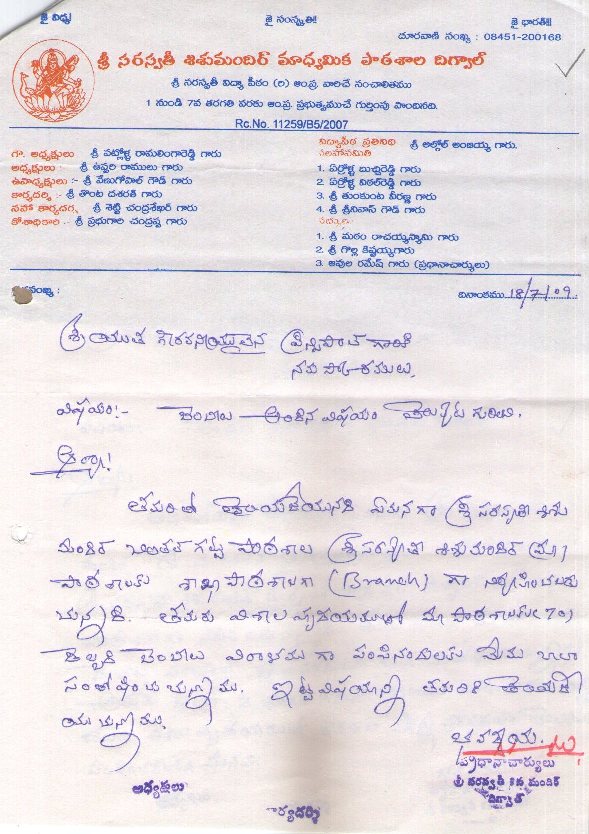 జై విద్య!
జై సంస్కృతి!
జై భారతి!!
దూరవాణి సంఖ్య : 08451-200168
శ్రీ సరస్వతీ శిశుమందిర్ మాధ్యమిక పాఠశాల దిగ్వాల్
శ్రీ సరస్వతీ విద్యా పీఠం (రి) ఆం.ప్ర. వారిచే సంచాలితము
1 నుండి 7వ తరగతి వరకు ఆం.ప్ర. ప్రభుత్వముచే గుర్తింపు పొందినది.
Rc.No. 11259/B5/2007
గౌ. అధ్యక్షులు శ్రీ పట్లోళ్ల రామలింగారెడ్డి గారు
అధ్యక్షులు :- శ్రీ ఉప్పరి రాములు గారు
ఉపాధ్యక్షులు :- శ్రీ వేణుగోపాల్ గౌడ్ గారు
కార్యదర్శి :- శ్రీ తొంట దశరథ్ గారు
సహా కార్యదర్శి శ్రీ శెట్టి చంద్రశేఖర్ గారు
కోశాధికారి :- శ్రీ ప్రభుగారి చంద్రప్ప గారు
విద్యాపీఠ ప్రతినిధి శ్రీ అల్గోల్ అంజయ్య గారు.
సలహాసమితి
1. పర్లోళ్ల బుచ్చిరెడ్డి గారు
2. పర్లోళ్ల విఠల్‌రెడ్డి గారు
3. శ్రీ తుంకుంట వీరణ్ణ గారు
4. శ్రీ శ్రీనివాస్ గౌడ్ గారు
సభ్యులు
1. శ్రీ మఠం రాచయ్యస్వామి గారు
2. శ్రీ గొల్ల కిష్టయ్యగారు
3. అవుల రమేష్ గారు (ప్రధానాచార్యులు)
సంఖ్య :
దినాంకము 18/7/09
శ్రీయుత గౌరవనీయులైన ప్రిన్సిపాల్ గారికి
నమస్కారములు,
విషయం:- బెంచీలు అందిన విషయం తెలుపుట గురించి.
ఆర్యా!
తమరితో తెలియజేయునది ఏమనగా శ్రీ సరస్వతీ శిశు
మందిర్ పాఠశాల శ్రీ సరస్వతీ శిశుమందిర్ (మా)
పాఠశాలకు శాఖా పాఠశాలగా (Branch) గా నిర్వహించబడు
చున్నది. తమరు విశాల హృదయముతో మా పాఠశాలకు (70)
బెంచీలు విరాళము గా పంపినందులకు మేము చాలా
సంతోషించుచున్నాము. ఇట్టి విషయాన్ని తమరికి తెలియజే
యుచున్నాము.
ప్రధానాచార్యులు
శ్రీ సరస్వతీ శిశు మందిర్
దిగ్వాల్
అధ్యక్షులు
కార్యదర్శి